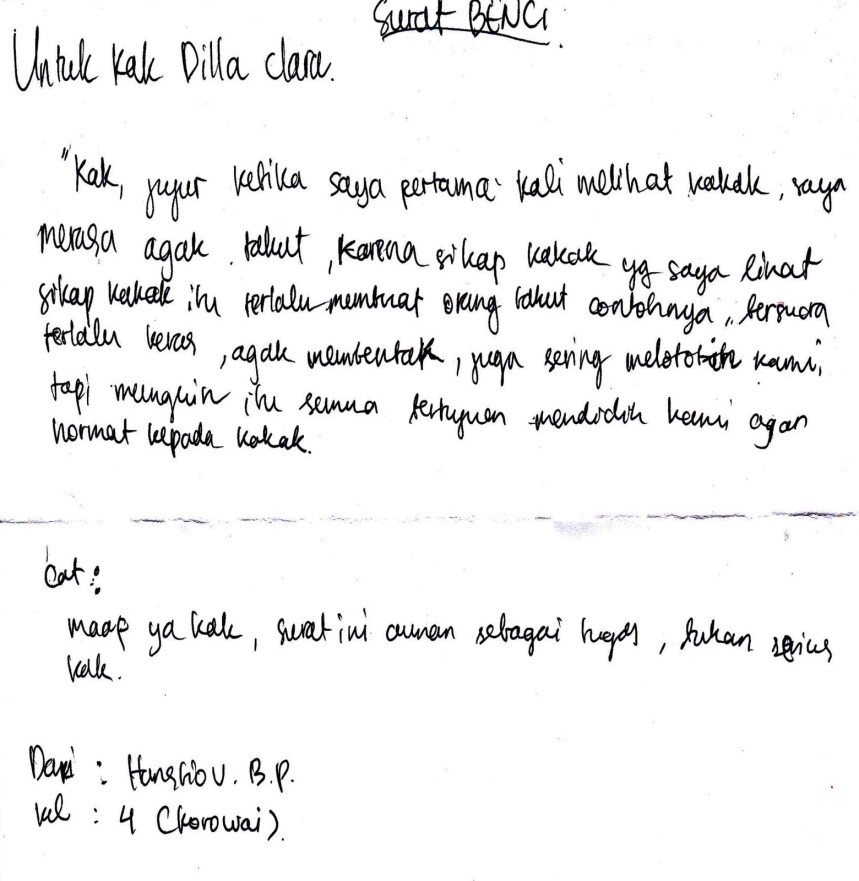 Surat BENCI.
Untuk Kak Dilla clara.
"Kak, jujur ketika saya pertama kali melihat kakak, saya
merasa agak takut, karena sikap kakak yg saya lihat
sikap kakak itu terlalu membuat orang takut contohnya, bersuara
terlalu keras, agak membentak, juga sering melototin kami,
tapi mungkin itu semua bertujuan mendidik kami agar
hormat kepada kakak.
Cat :
maap ya kak, surat ini cuman sebagai tugas, bukan serius
kak.
Dari : B.P.
kel : 4 (korowai).